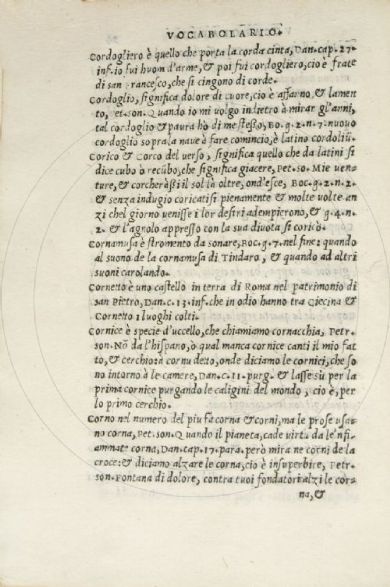 VOCABOLARIO.
Cordogliero è quello che porta la corda cinta, Dan. cap. 27.
inf. io fui huom d'arme, & poi fui cordogliero, cio è frate
di san Francesco, che si cingono di corde.
Cordoglio, significa dolore di cuore, cio è affanno, & lamen
to, Pet. son. Quando io mi volgo indietro à mirar gl'anni,
tal cordoglio & paura hò di me stesso, Bo. g. 2. n. 7. nuouo
cordoglio sopra la naue è fare comincio, è latino cordoliū.
Corico & Corco del uerso, significa quello che da latini si
dice cubo ò recūbo, che significa giacere, Pet. so. Mie uen-
ture, & corcherassi il sol là oltre, ond'esce, Boc. g. 2. n. 2.
& senza indugio coricatisi pienamente & molte volte an
zi chel giorno uenisse i lor desiri adempierono, & g. 4. n.
2. & l'agnolo appresso con la sua diuota si coricò.
Cornamusa è stromento da sonare, Boc. g. 7. nel fine: quando
al suono de la cornamusa di Tindaro, & quando ad altri
suoni carolando.
Cornetto è uno castello in terra di Roma nel patrimonio di
san Pietro, Dan. c. 13. inf. che in odio hanno tra Ciecina &
Cornetto i luoghi colti.
Cornice è specie d'uccello, che chiamiamo cornacchia, Petr-
son. Nō da l'hispano, ò qual manca cornice canti il mio fat
to, & cerchio tà cornu detto, onde diciamo le cornici, che so
no intorno à le camere, Dan. c. 11. purg. & lasse sù per la
prima cornice purgando le caligini del mondo, cio è, per
lo primo cerchio.
Corno nel numero del piu fà corna & corni, ma le prose usar
no corna, Pet. son. Quando il pianeta, cade virt. da le'nfi-
ammate corna, Dan. cap. 17. para. però mira ne corni de la
croce: & diciamo alzare le corna, cio è insuperbire, Petr-
son. Fontana di dolore, contra tuoi fondatori alzi le cor-
na, &